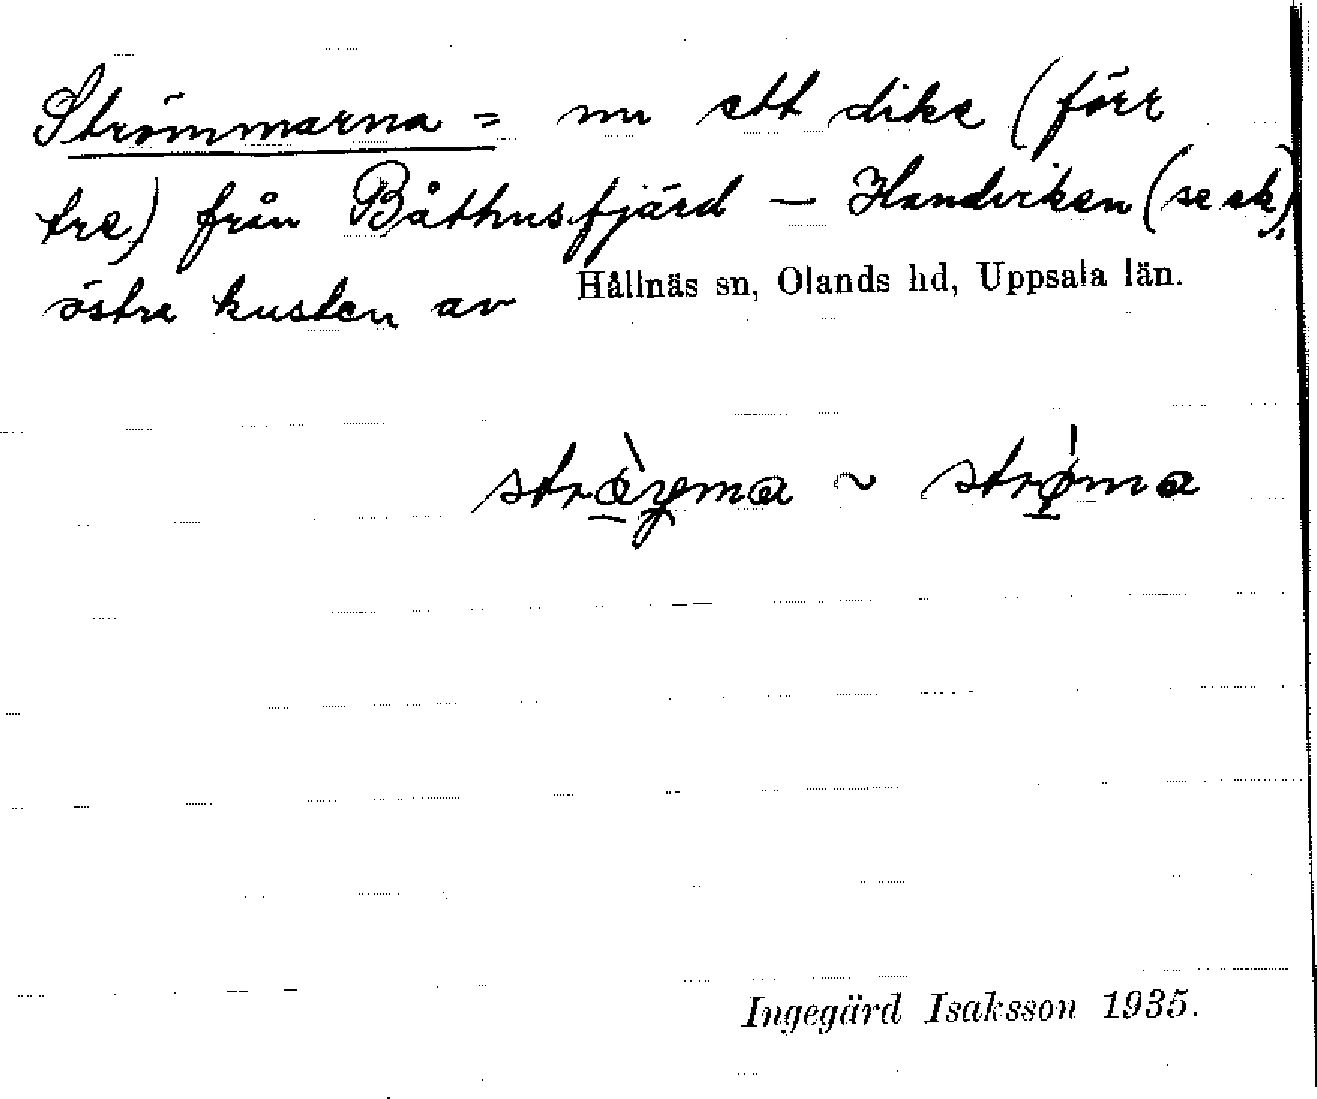 Strömmarna = nu ett dike (förr
tre) från Båthusfjärd – Handviken (se ek),
östra kusten av Hållnäs sn, Olands hd, Uppsala län.
~
Ingegärd Isaksson 1935.